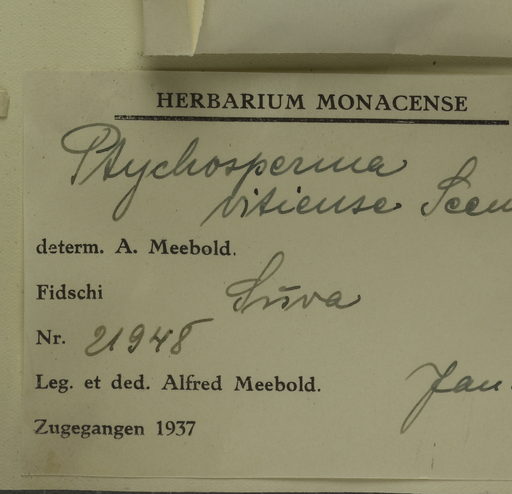 HERBARIUM MONACENSE
Ptychosperma
vitiense Seem
determ. A. Meebold.
Fidschi Suva
Nr. 21948
Leg. et ded. Alfred Meebold. Jan.
Zugegangen 1937